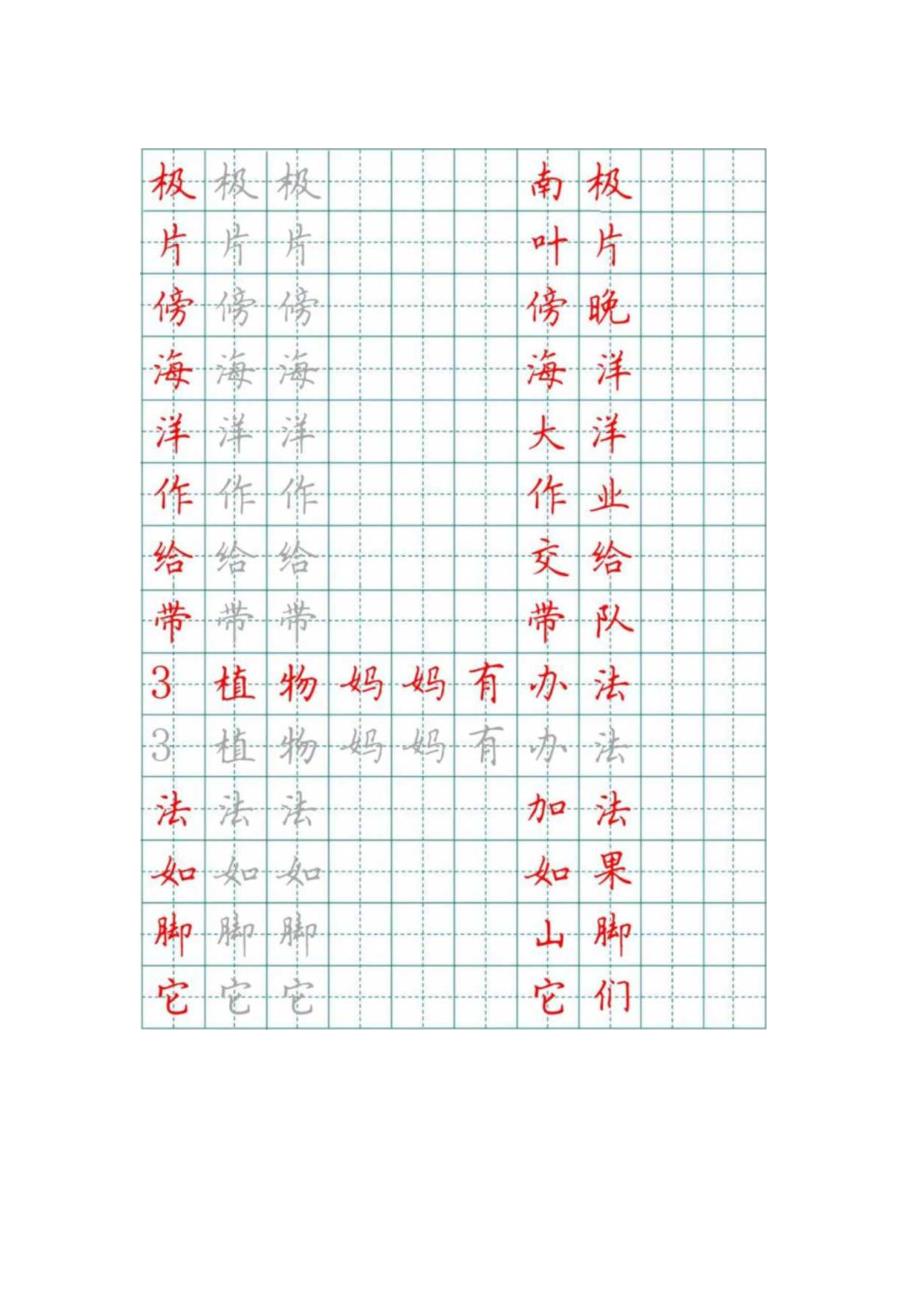 极 极 极 南 极
片 片 片 叶 片
傍 傍 傍 傍 晚
海 海 海 海 洋
洋 洋 洋 大 洋
作 作 作 作 业
给 给 给 交 给
带 带 带 带 队
3 植 物 妈 妈 有 办 法
3 植 物 妈 妈 有 办 法
法 法 法 加 法
如 如 如 如 果
脚 脚 脚 山 脚
它 它 它 它 们